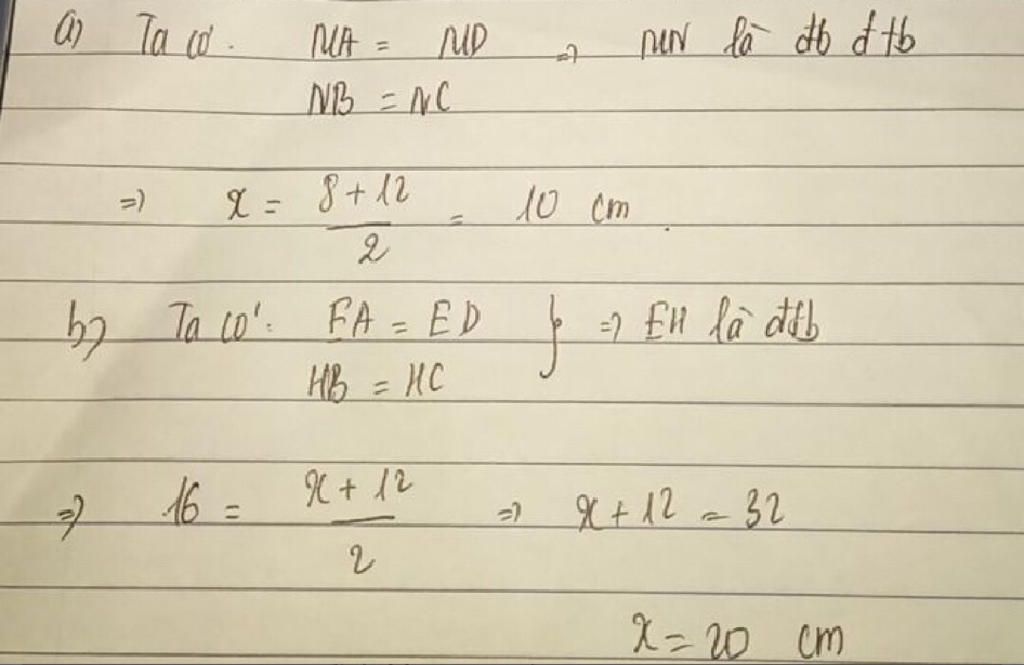 a) Ta có. MA = MD => MN là đtb đtb
NB = NC
=> x = (8 + 12) / 2 = 10 cm.
b) Ta có: EA = ED } => EH là đtb
HB = HC
=> 16 = (x + 12) / 2 => x + 12 = 32
x = 20 cm